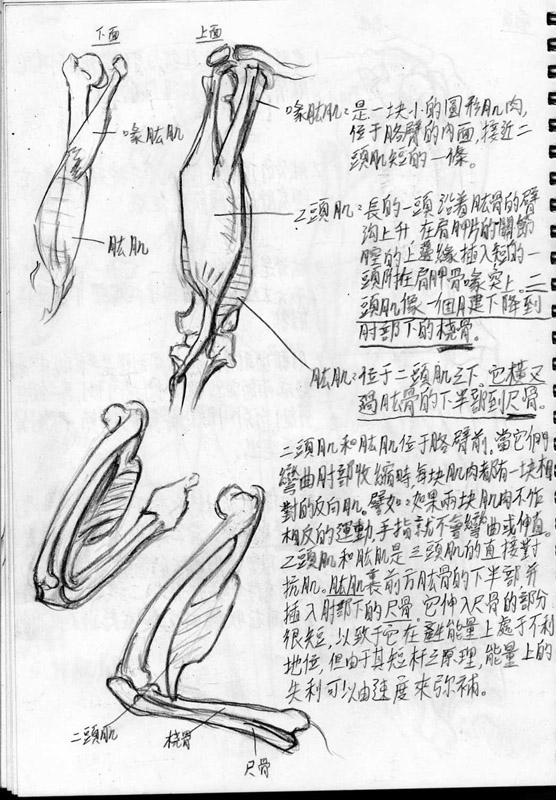 下面
上面
喙肱肌
肱肌
喙肱肌:是一块小的圆形肌肉,
位于胳臂的內面,接近二
頭肌短的一條。
二頭肌:長的一頭沿着肱骨的臂
沟上升,在肩胛片的關節
膣的上邊緣插入短的一
頭附在肩胛骨喙突上。二
頭肌像一個月建下降到
肘部下的桡骨。
肱肌:位于二頭肌之下。它橫叉
过肱骨的下半部到尺骨。
二頭肌和肱肌位于胳臂前。當它們
彎曲肘部收縮時每块肌肉都有一块相
對的反向肌。譬如:如果兩块肌肉不作
相反的運動,手指就不會彎曲或伸直。
二頭肌和肱肌是三頭肌的直接對
抗肌。肱肌裹前方肱骨的下半部并
插入肘部下的尺骨。它伸入尺骨的部分
很短,以致于它在能量上處于不利
地位,但由于其短杆之原理,能量上的
失利可以由速度來弥補。
二頭肌
桡骨
尺骨